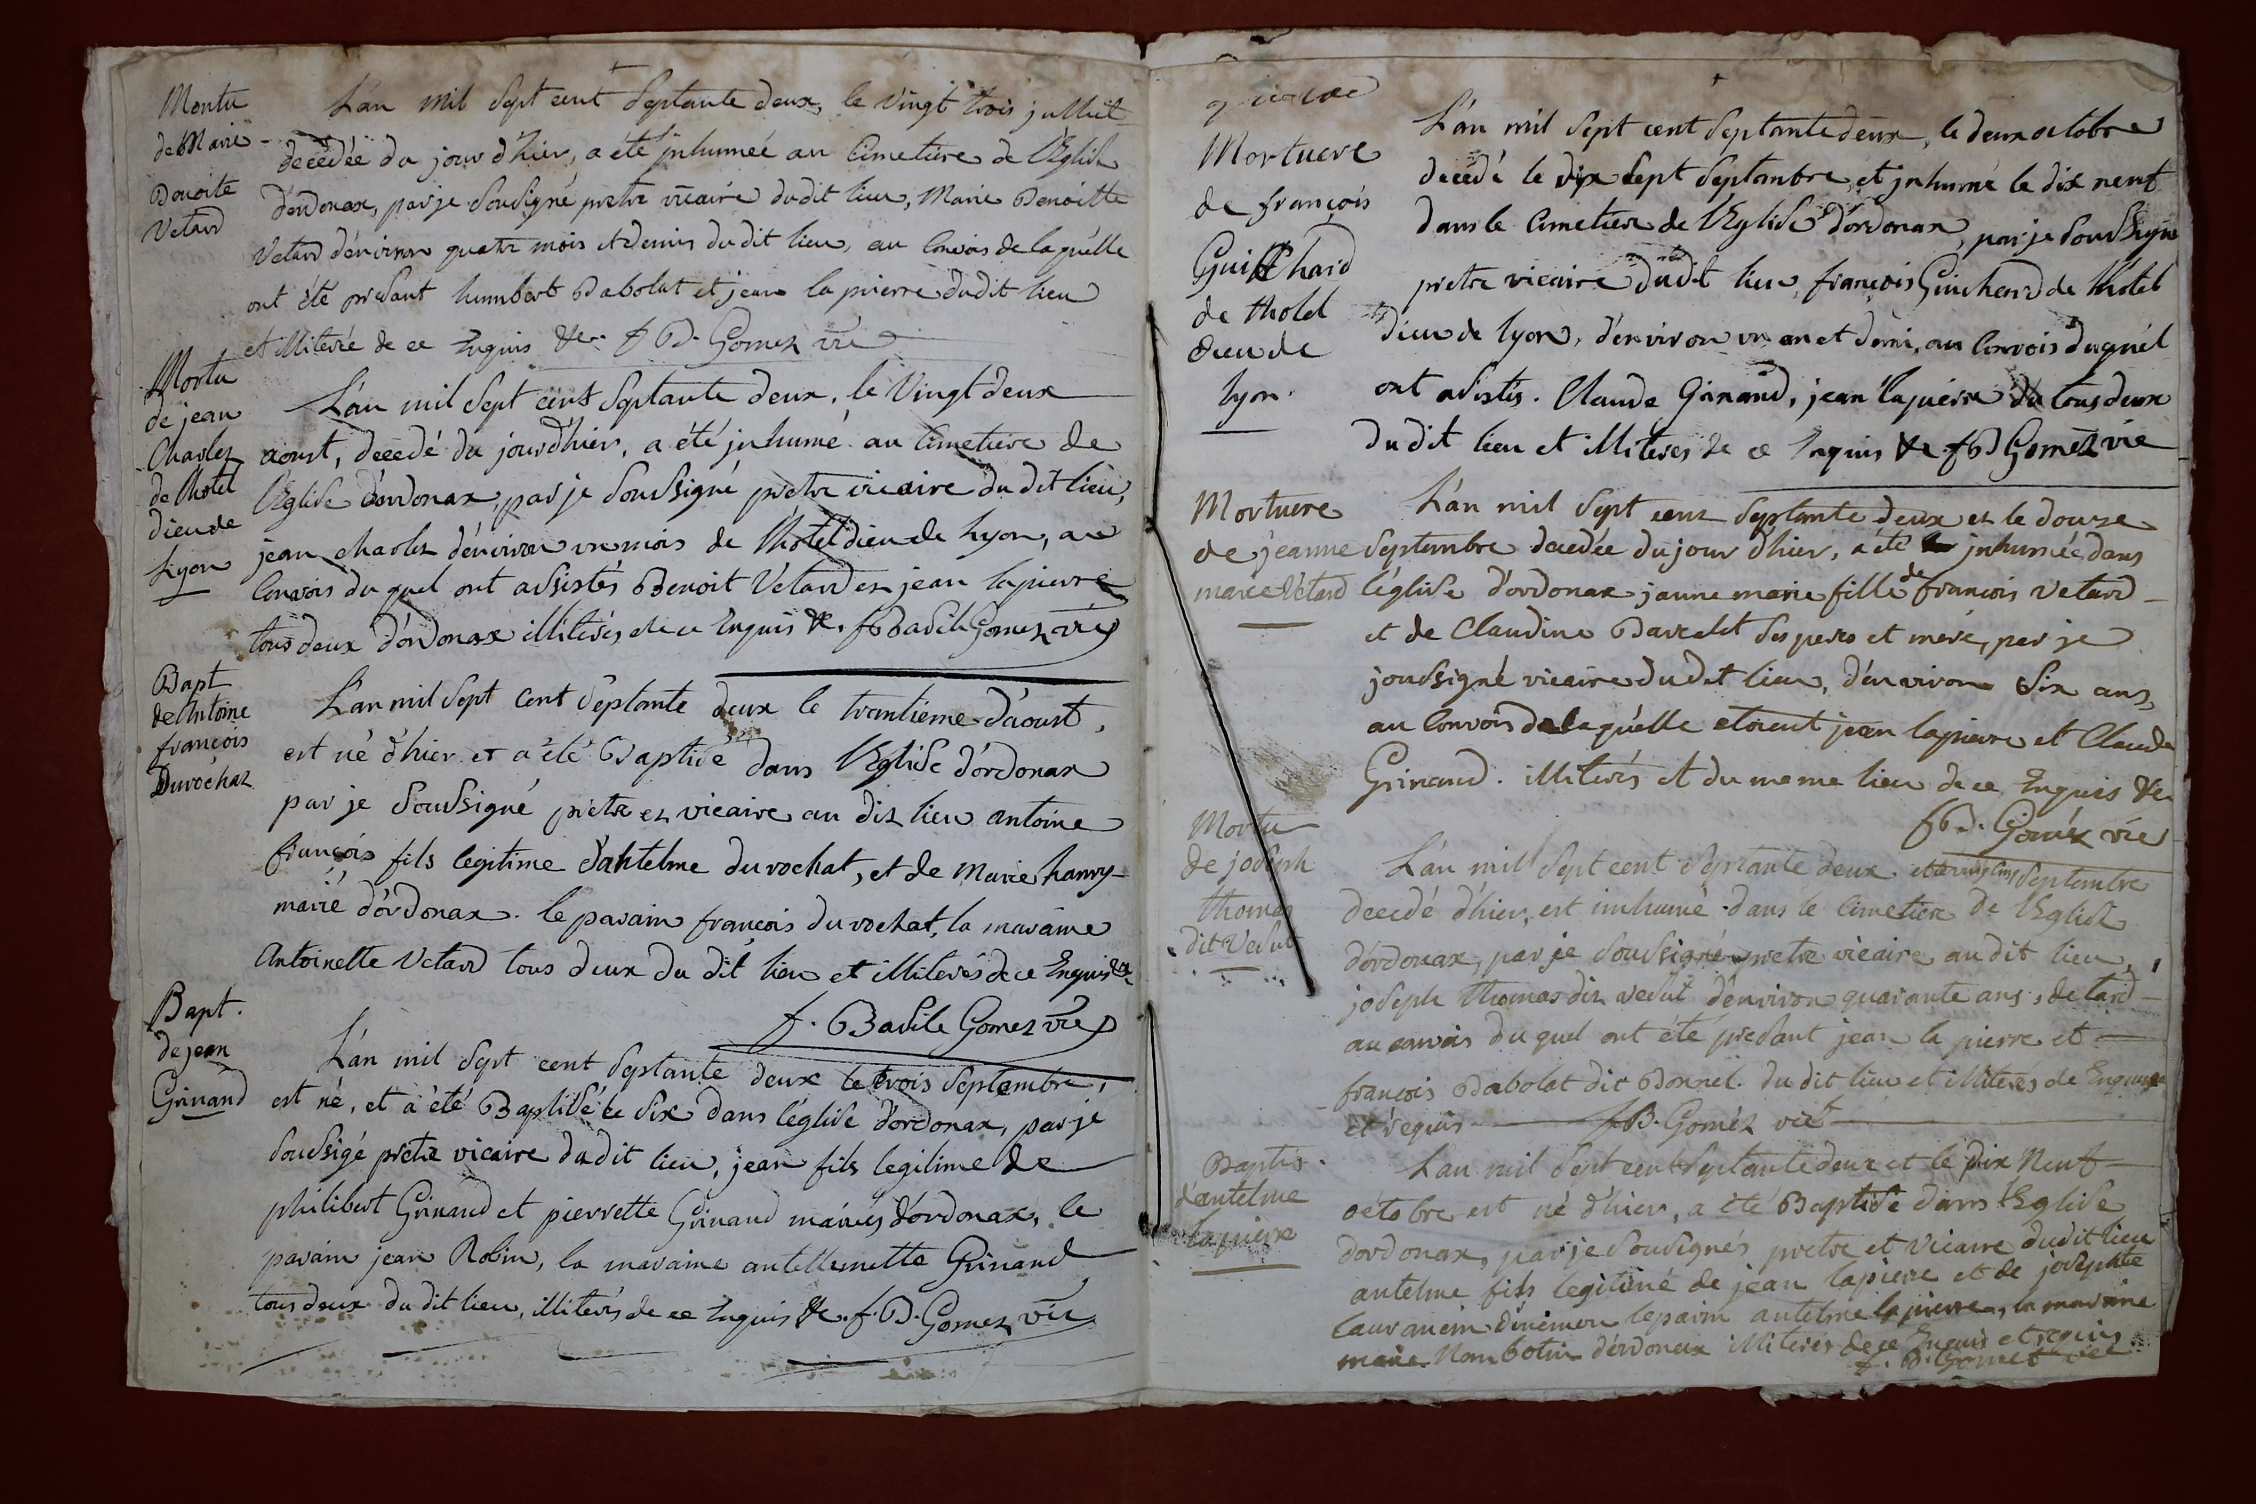 Mortu
de Marie
Benoite
Vetard
L'an mil sept cent septante deux, le vingt trois juilliet
decédée du jour d'hier, a été inhumée au cimetiere de l'Eglise
d'ordonax, par je soussigné pretre vicaire dudit lieu, Marie Benoitte
Vetard d'environ quatre mois et demis dudit lieu, au convois de laquelle
ont été présant humbert Babolat et jean la pierre dudit lieu
et illiteré de ce Enquis &c. f B. Gomez vic
Mortu
de jean
Charlez
de l'hotel
dieu de
Lyon
L'an mil sept cent septante deux, le vingt deux
aoust, decedé du jour d'hier, a été inhumé au cimetiere de
l'Eglise d'ordonax, par je soussigné pretre vicaire du dit lieu,
jean charlez d'environ un mois de l'hotel dieu de Lyon, au
convois du quel ont assistés Benoit Vetard et jean lapierre
tous deux d'ordonax illiterés, de ce Enquis &c. f Basile Gomez vic
Bapt
de Antoine
françois
Durochaz
L'an mil sept cent septante deux le trantiéme d'aoust,
est né d'hier et a été Baptisé dans l'Eglise d'ordonax
par je soussigné pretre et vicaire au dit lieu antoine
françois fils legitime d'antelme du rochat, et de Marie hanry
marié d'ordonax. le parain françois du rochat, la maraine
Antoinette Vetard tous deux du dit lieu et illiterés de ce Enquis &c
f. Basile Gomez vic
Bapt.
de jean
Grinand
L'an mil sept cent septante deux le trois septembre,
est né, et a été Baptisé le six dans l'église d'ordonax, par je
soussigé pretre vicaire dudit lieu, jean fils legitime de
philibert Grinand et pierrette Grinand mariés d'ordonax, le
parain jean Robin, la maraine antellemette Grinand
tous deux du dit lieu, illiterés de ce Enquis &c. f. B. Gomez vic
Mortuere
de françois
Guichard
de lhotel
dieu de
lyon.
L'an mil sept cent septante deux, le deux octobre
decédé le dix sept septembre, et inhumé le dix neuf
dans le cimetiere de l'Eglise d'ordonax, par je soussigné
pretre vicaire dudit lieu, françois Guichard de l'hotel
dieu de lyon, d'environ un an et demi, au convois duquel
ont assistés. Claude Grinand, jean lapierre tous deux
du dit lieu et illiteres de ce Enquis &c f B Gomez vic
Mortuere
de jeanne
marie Vétard
L'an mil sept cent septante deux et le douze
septembre decedée du jour d'hier, a été inhumée dans
l'église d'ordonax jeanne marie fille de françois vetard
et de Claudine Barcelet ses peres et mere, par je
soussigné vicaire du dit lieu, d'environ six ans,
au convois de laquelle etoient jean lapierre et Claude
Grinand. illiterés et du meme lieu de ce Enquis &c
f B. Gomez vic
Mortu
de joseph
thomas
dit Vesut
L'an mil sept cent septante deux et le vingt cinq septembre
decedé d'hier, est inhumé dans le cimetiere de l'Eglise
d'ordonax, par je soussigné pretre vicaire au dit lieu,
joseph thomas dit vesut d'environ quarante ans, de tard
au convois du quel ont été presant jean la pierre et
françois Babolat dit Bonnet. du dit lieu et illiterés de Enquis
et requis f B. Gomez vic
Baptis.
d'antelme
lapierre
L'an mil sept cent septante deux et le dix neuf
octobre est né d'hier, a été Baptisé dans l'Eglise
d'ordonax, par je soussignés pretre et vicaire dudit lieu
antelme fils legitime de jean lapierre et de josephte
lepairin antelme lapierre, la maraine
marie d'ordonax illiterés de ce Enquis et requis
f. B. Gomez vic